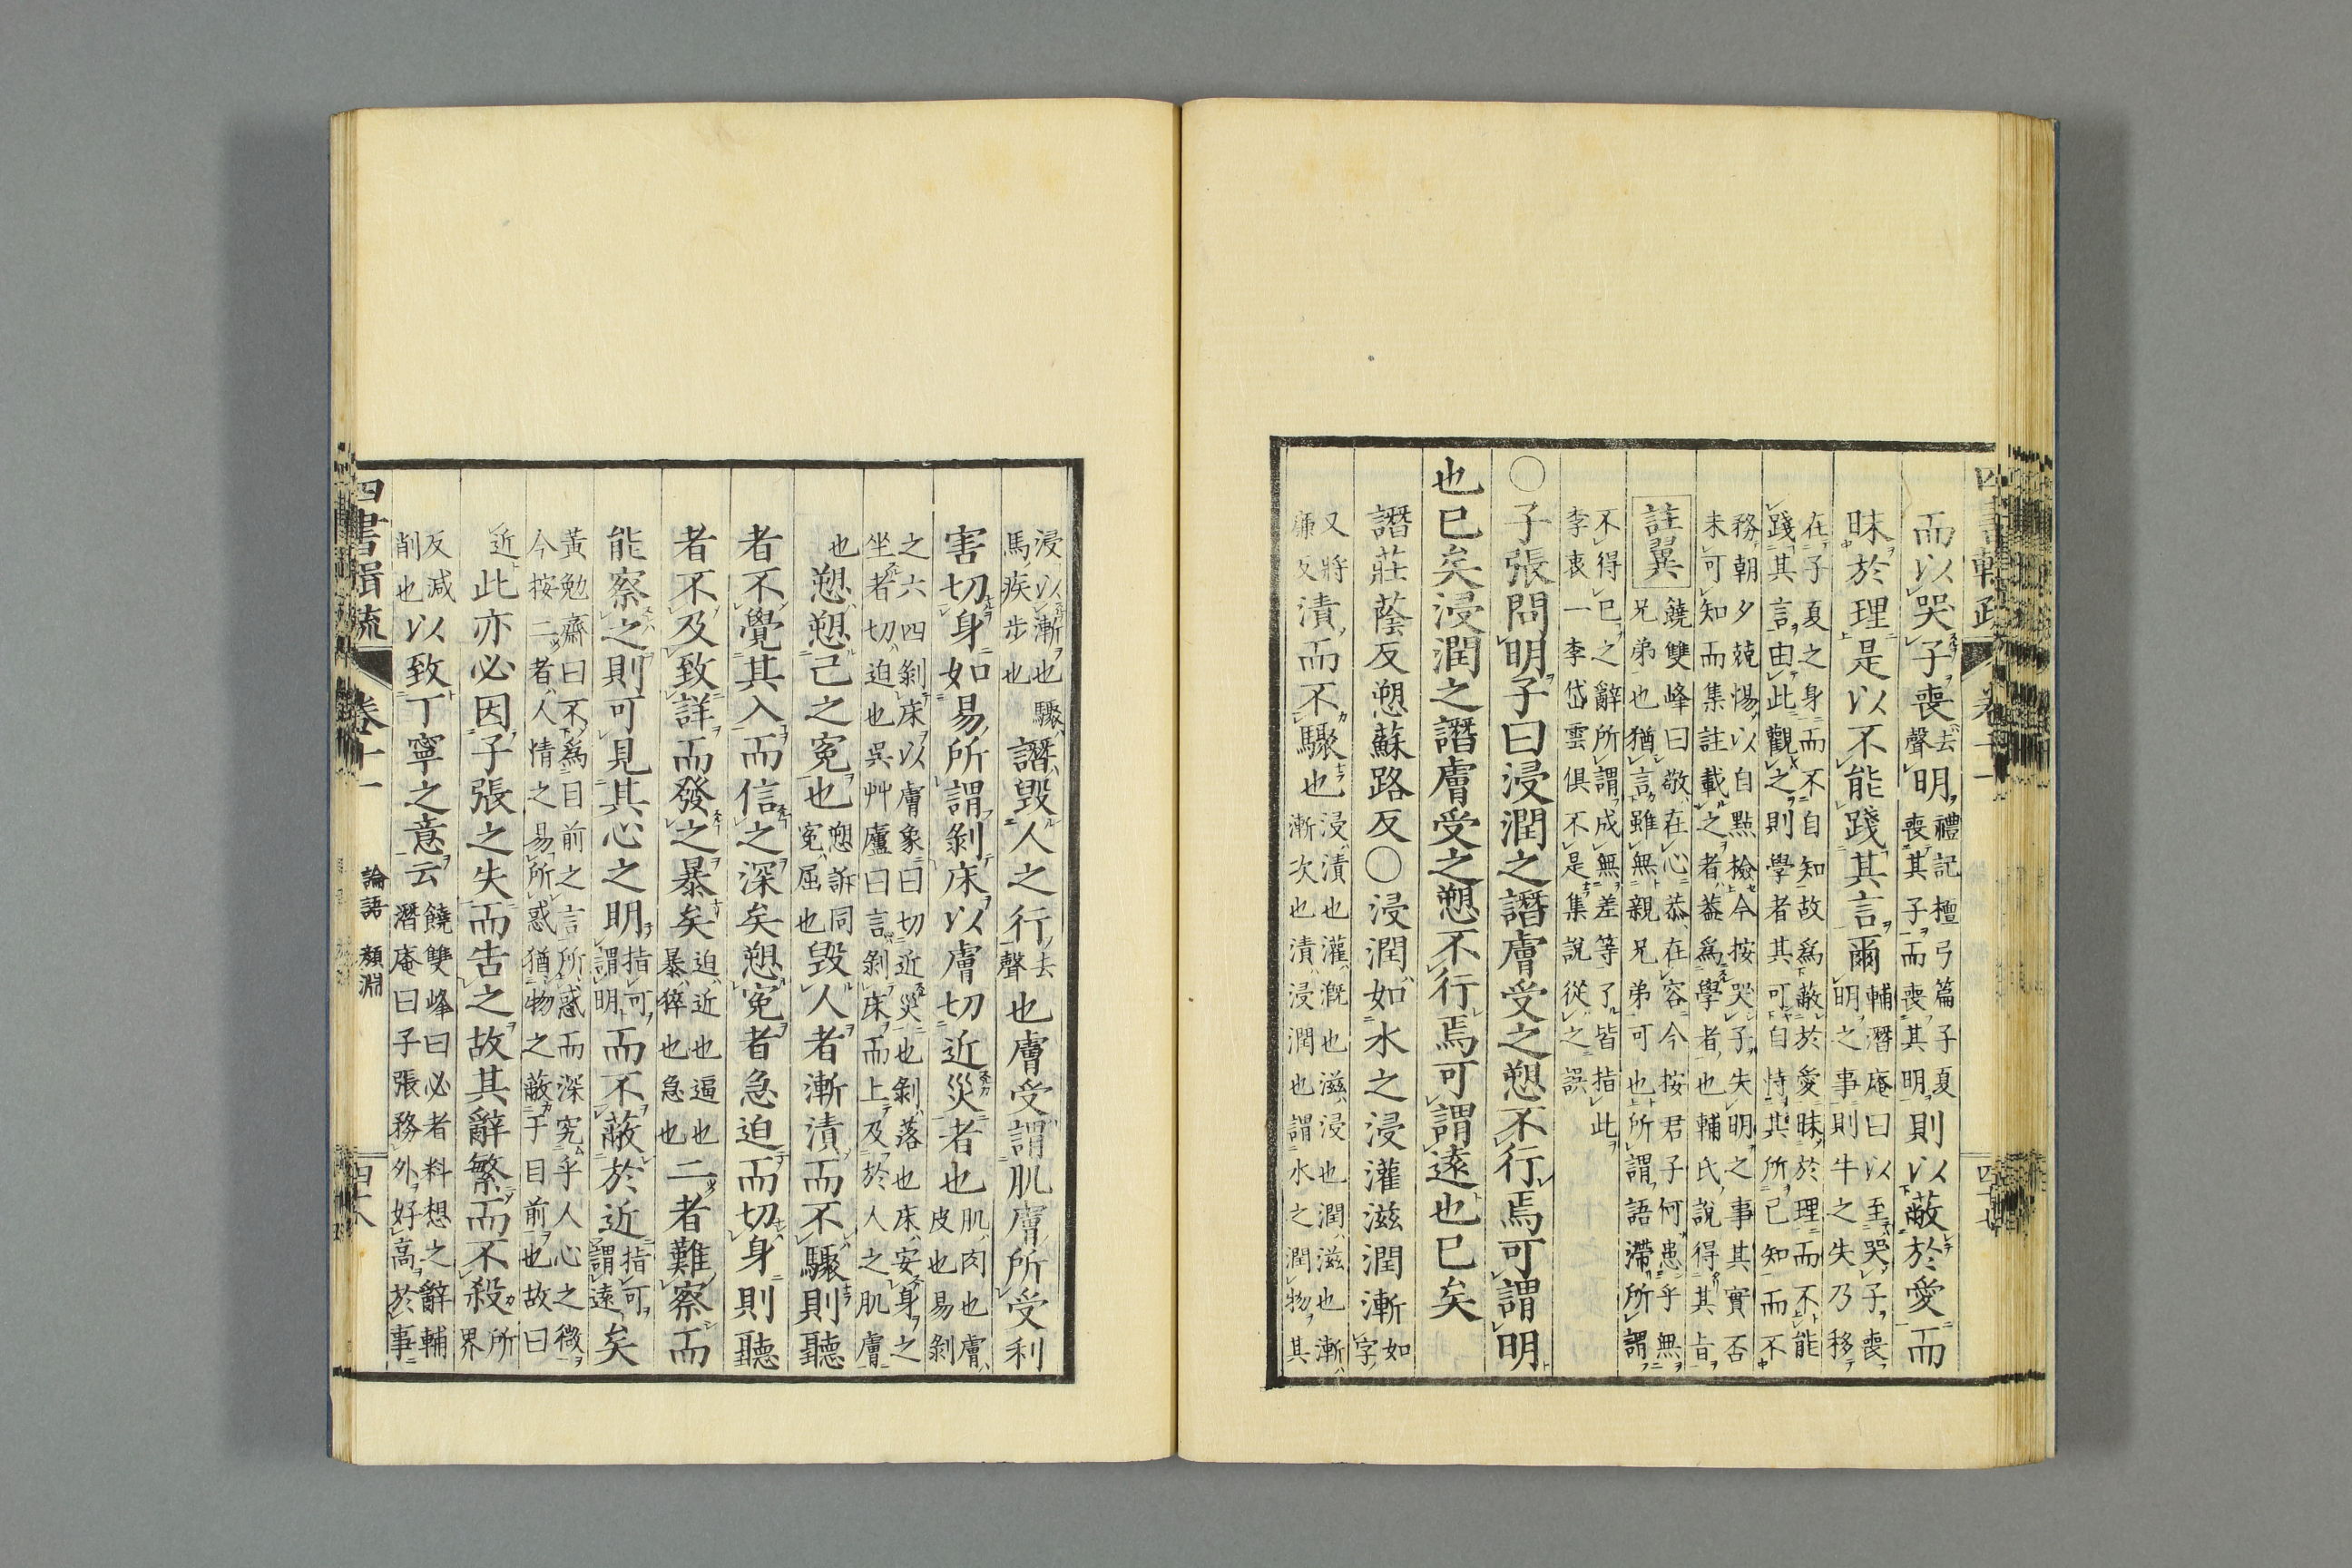 而以哭子喪去聲明禮記檀弓篇子夏喪其子而喪其明則以蔽於愛而
昧於理是以不能踐其言爾輔潛庵曰以至哭子喪明之事則牛之失乃移
在子夏之身而不自知故爲蔽於愛昧於理而不能踐其言由此觀之則學者其可自恃其所已知而不
務朝夕兢惕以自點檢今按哭子失明之事其實否未可知而集註載之者蓋爲學者也輔氏說得其旨
註翼饒雙峰曰敬在心恭在容今按君子何患乎無兄弟也猶言雖無親兄弟可也所謂語滯所謂
不得已之辭所謂成無差等了皆指此李衷一李岱雲俱不是集說從之誤
○子張問明子曰浸潤之譖膚受之愬不行焉可謂明
也已矣浸潤之譖膚受之愬不行焉可謂遠也已矣
譖莊蔭反愬蘇路反○浸潤如水之浸灌滋潤漸如字
又將廉反漬而不驟也浸漬也灌漑也滋浸也潤滋也漸漸次也漬浸潤也謂水之潤物其
浸以漸也驟馬疾步也譖毀人之行去聲也膚受謂肌膚所受利
害切身如易所謂剝床以膚切近災者也肌肉也膚皮也易剝
之六四剝床以膚象曰切近災也剝落也床安身之坐者切迫也吳艸廬曰言剝床而上及於人之肌膚
也愬愬己之冤也愬訴同冤屈也毀人者漸漬而不驟則聽
者不覺其入而信之深矣愬冤者急迫而切身則聽
者不及致詳而發之暴矣迫近也逼也暴猝也急也二者難察而
能察之則可見其心之明指可謂明而不蔽於近指可謂遠矣
黃勉齋曰不爲目前之言所惑而深究乎人心之微今按二者人情之易所惑猶物之蔽于目前也故曰
近此亦必因子張之失而告之故其辭繁而不殺所界
反減削也以致丁寧之意云饒雙峰曰必者料想之辭輔潛庵曰子張務外好高於事
四書輯疏
卷十一
論語
顏淵